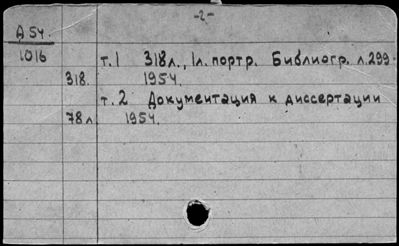 -2-
Д 54.
1016
т.1 318л., 1л. портр. Библиогр. л.299.
318. 1954.
т.2 Документация к диссертации
78 л. 1954.